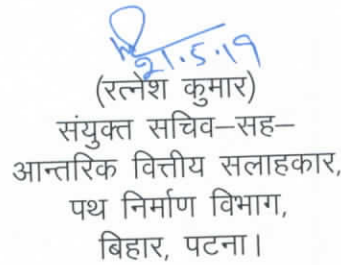 21.5.19
(रत्नेश कुमार)
संयुक्त सचिव–सह–
आन्तरिक वित्तीय सलाहकार,
पथ निर्माण विभाग,
बिहार, पटना।